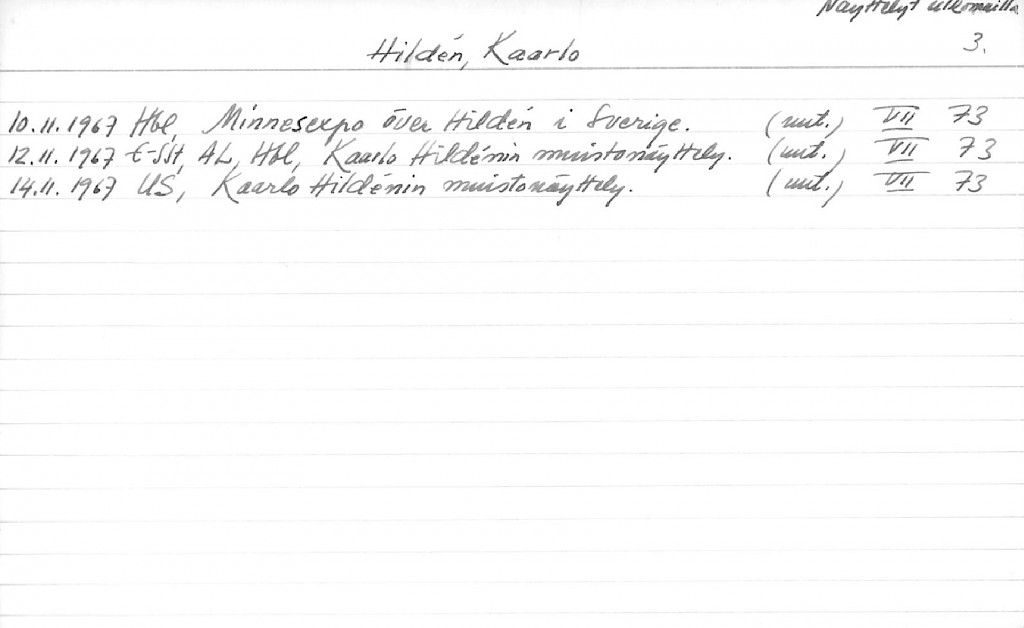 Näyttelyt ulkomailla
3.
Hildén, Kaarlo
10.11.1967 Hbl, Minnesexpo över Hildén i Sverige. (uut.) VII 73
12.11.1967 E-SSt, AL, Hbl, Kaarlo Hildénin muistonäyttely. (uut.) VII 73
14.11.1967 US, Kaarlo Hildénin muistonäyttely. (uut.) VII 73